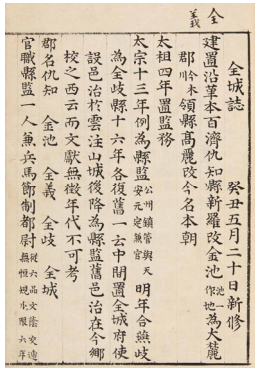 全義
全城誌 癸丑五月二十日新修
建置沿革本百濟仇知縣新羅改金池池一作地為大麓
郡今木州領縣高麗改今名本朝
太祖四年置監務
太宗十三年例為縣監公州鎮管與天安元定兼官明年合燕岐
為全岐縣十六年各復舊一云中間置全城府使
設邑治於雲注山城後降為縣監舊邑治在今鄉
校之西云而文獻無徵年代不可考
郡名仇知 金池 全義 全岐 全城
官職縣監一人兼兵馬節制都尉從六品文蔭交遞無恒規小限六年